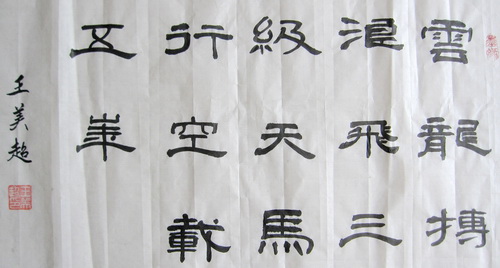 雲龍搏
浪飛三
級天馬
行空載
五峯
王美超